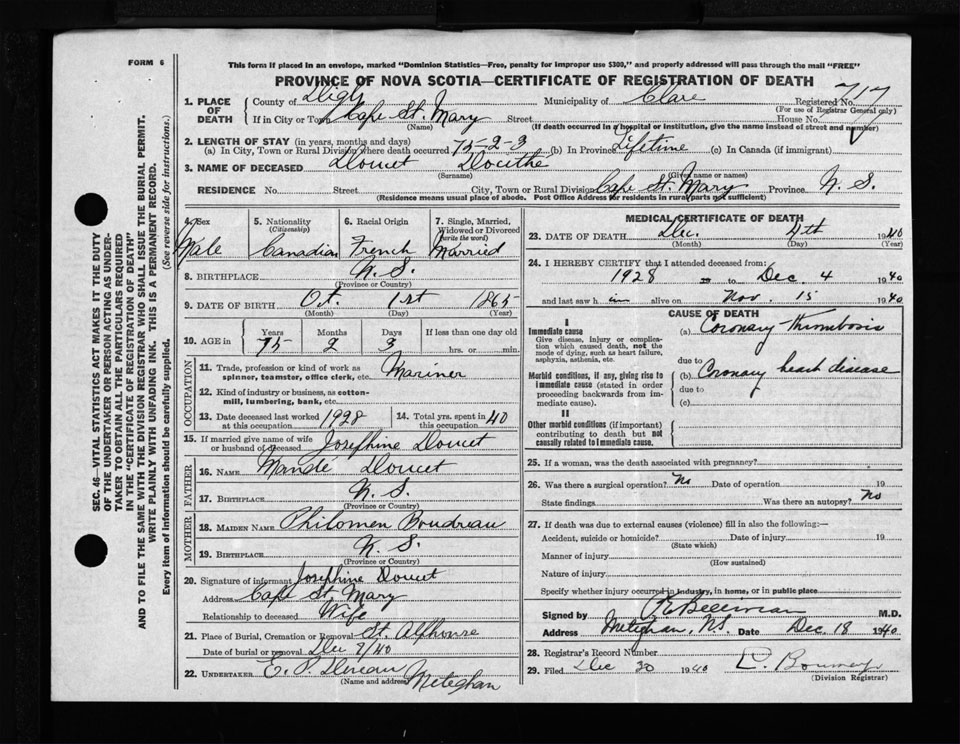 FORM 6
This form if placed in an envelope, marked "Dominion Statistics—Free, penalty for improper use $300," and properly addressed will pass through the mail "FREE"
PROVINCE OF NOVA SCOTIA—CERTIFICATE OF REGISTRATION OF DEATH
1. PLACE OF DEATH County of Digby Municipality of Clare Registered No. 717
(For use of Registrar General only)
If in City or Town Cape St. Mary Street House No.
(Name) (If death occurred in a hospital or institution, give the name instead of street and number)
2. LENGTH OF STAY (in years, months and days)
(a) In City, Town or Rural Division where death occurred 75-2-3 (b) In Province Lifetime (c) In Canada (if immigrant)
3. NAME OF DECEASED Doucet Docithe
(Surname) (Given name or names)
RESIDENCE No. Street City, Town or Rural Division Cape St. Mary Province N. S.
(Residence means usual place of abode. Post Office Address for residents in rural parts not sufficient)
4. Sex Male
5. Nationality (Citizenship) Canadian
6. Racial Origin French
7. Single, Married, Widowed or Divorced (write the word) Married
8. BIRTHPLACE N. S.
(Province or Country)
9. DATE OF BIRTH Oct. 1st 1865
(Month) (Day) (Year)
10. AGE in Years Months Days If less than one day old
75 2 3 hrs. or min.
OCCUPATION
11. Trade, profession or kind of work as spinner, teamster, office clerk, etc. Mariner
12. Kind of industry or business, as cotton-mill, lumbering, bank, etc.
13. Date deceased last worked at this occupation 1928 14. Total yrs. spent in this occupation 40
15. If married give name of wife or husband of deceased Josephine Doucet
FATHER
16. NAME Mandé Doucet
17. BIRTHPLACE N. S.
(Province or Country)
MOTHER
18. MAIDEN NAME Philomen Boudreau
19. BIRTHPLACE N. S.
(Province or Country)
20. Signature of informant Josephine Doucet
Address Cape St Mary
Relationship to deceased Wife
21. Place of Burial, Cremation or Removal St. Alphonse
Date of burial or removal Dec 8/40
22. UNDERTAKER E. P. Meteghan
(Name and address)
MEDICAL CERTIFICATE OF DEATH
23. DATE OF DEATH Dec. 4th 1940
(Month) (Day) (Year)
24. I HEREBY CERTIFY that I attended deceased from:
1928 to Dec 4 1940
and last saw him alive on Nov. 15 1940
CAUSE OF DEATH
I
Immediate cause
Give disease, injury or complication which caused death, not the mode of dying, such as heart failure, asphyxia, asthenia, etc.
(a) Coronary thrombosis
due to
Morbid conditions, if any, giving rise to immediate cause (stated in order proceeding backwards from immediate cause).
(b) Coronary heart disease
due to
(c)
II
Other morbid conditions (if important) contributing to death but not causally related to immediate cause.
25. If a woman, was the death associated with pregnancy?
26. Was there a surgical operation? No Date of operation 19
State findings Was there an autopsy? No
27. If death was due to external causes (violence) fill in also the following:—
Accident, suicide or homicide? Date of injury 19
(State which)
Manner of injury
(How sustained)
Nature of injury
Specify whether injury occurred in industry, in home, or in public place
Signed by M.D.
Address Meteghan, N.S. Date Dec 18 1940
28. Registrar's Record Number
29. Filed Dec 30 1940
(Division Registrar)
SEC. 46—VITAL STATISTICS ACT MAKES IT THE DUTY
OF THE UNDERTAKER OR PERSON ACTING AS UNDERTAKER TO OBTAIN ALL THE PARTICULARS REQUIRED
IN THE "CERTIFICATE OF REGISTRATION OF DEATH"
AND TO FILE THE SAME WITH THE DIVISION REGISTRAR WHO SHALL ISSUE THE BURIAL PERMIT.
WRITE PLAINLY WITH UNFADING INK. THIS IS A PERMANENT RECORD.
Every item of information should be carefully supplied. (See reverse side for instructions.)